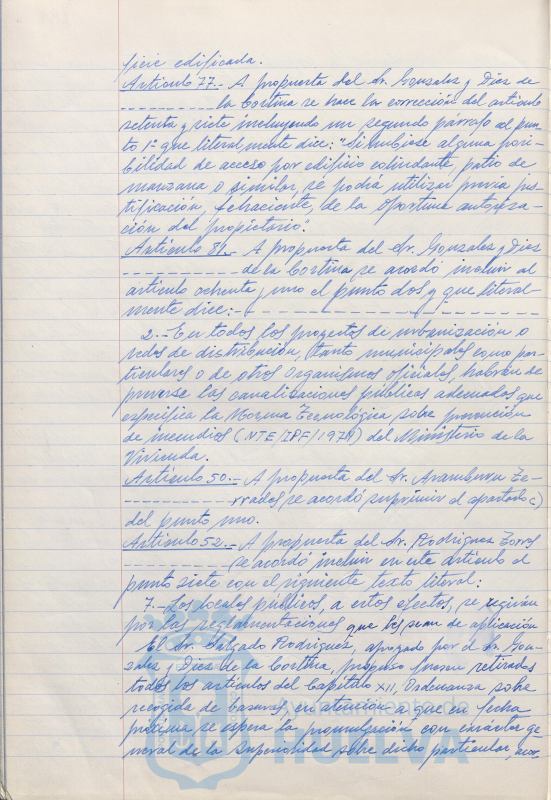 ficie edificada.
Artículo 77.- A propuesta del Sr. Gonzalez y Diez de
la Cortina se hace la corrección del artículo
setenta y siete incluyendo un segundo párrafo al pun-
to 1º que literalmente dice: "Si hubiese alguna posi-
bilidad de acceso por edificio colindante, patio de
manzana o similar, se podía utilizar previa jus-
tificación, fehaciente, de la oportuna autoriza-
ción del propietario".
Artículo 81.- A propuesta del Sr. Gonzalez y Diez
de la Cortina se acordó incluir al
artículo ochenta y uno el punto dos y que literal-
mente dice:-
2.- En todos los proyectos de urbanización o
redes de distribución, tanto municipales como par-
ticulares o de otros organismos oficiales, habrán de
preverse las canalizaciones públicas adecuadas que
especifica la Norma Tecnológica sobre prevención
de incendios (NTE/IPF/1974) del Ministerio de la
Vivienda.
Artículo 50.- A propuesta del Sr. Aramburu Ze-
rrados se acordó suprimir el apartado c)
del punto uno.
Artículo 52.- A propuesta del Sr. Rodriguez Zorros
se acordó incluir en este artículo el
punto siete con el siguiente texto literal:
7.- Los locales públicos, a estos efectos, se regirán
por las reglamentaciones que les sean de aplicación
El Sr. Salgado Rodriguez, apoyado por el Sr. Gon-
zalez y Diez de la Cortina, propuso fuesen retirados
todos los artículos del Capítulo XII, Ordenanza sobre
recogida de basuras, en atención a que en fecha
próxima se espera la promulgación con carácter ge-
neral de la Superioridad sobre dicho particular,
Ayuntamiento de
HUELVA